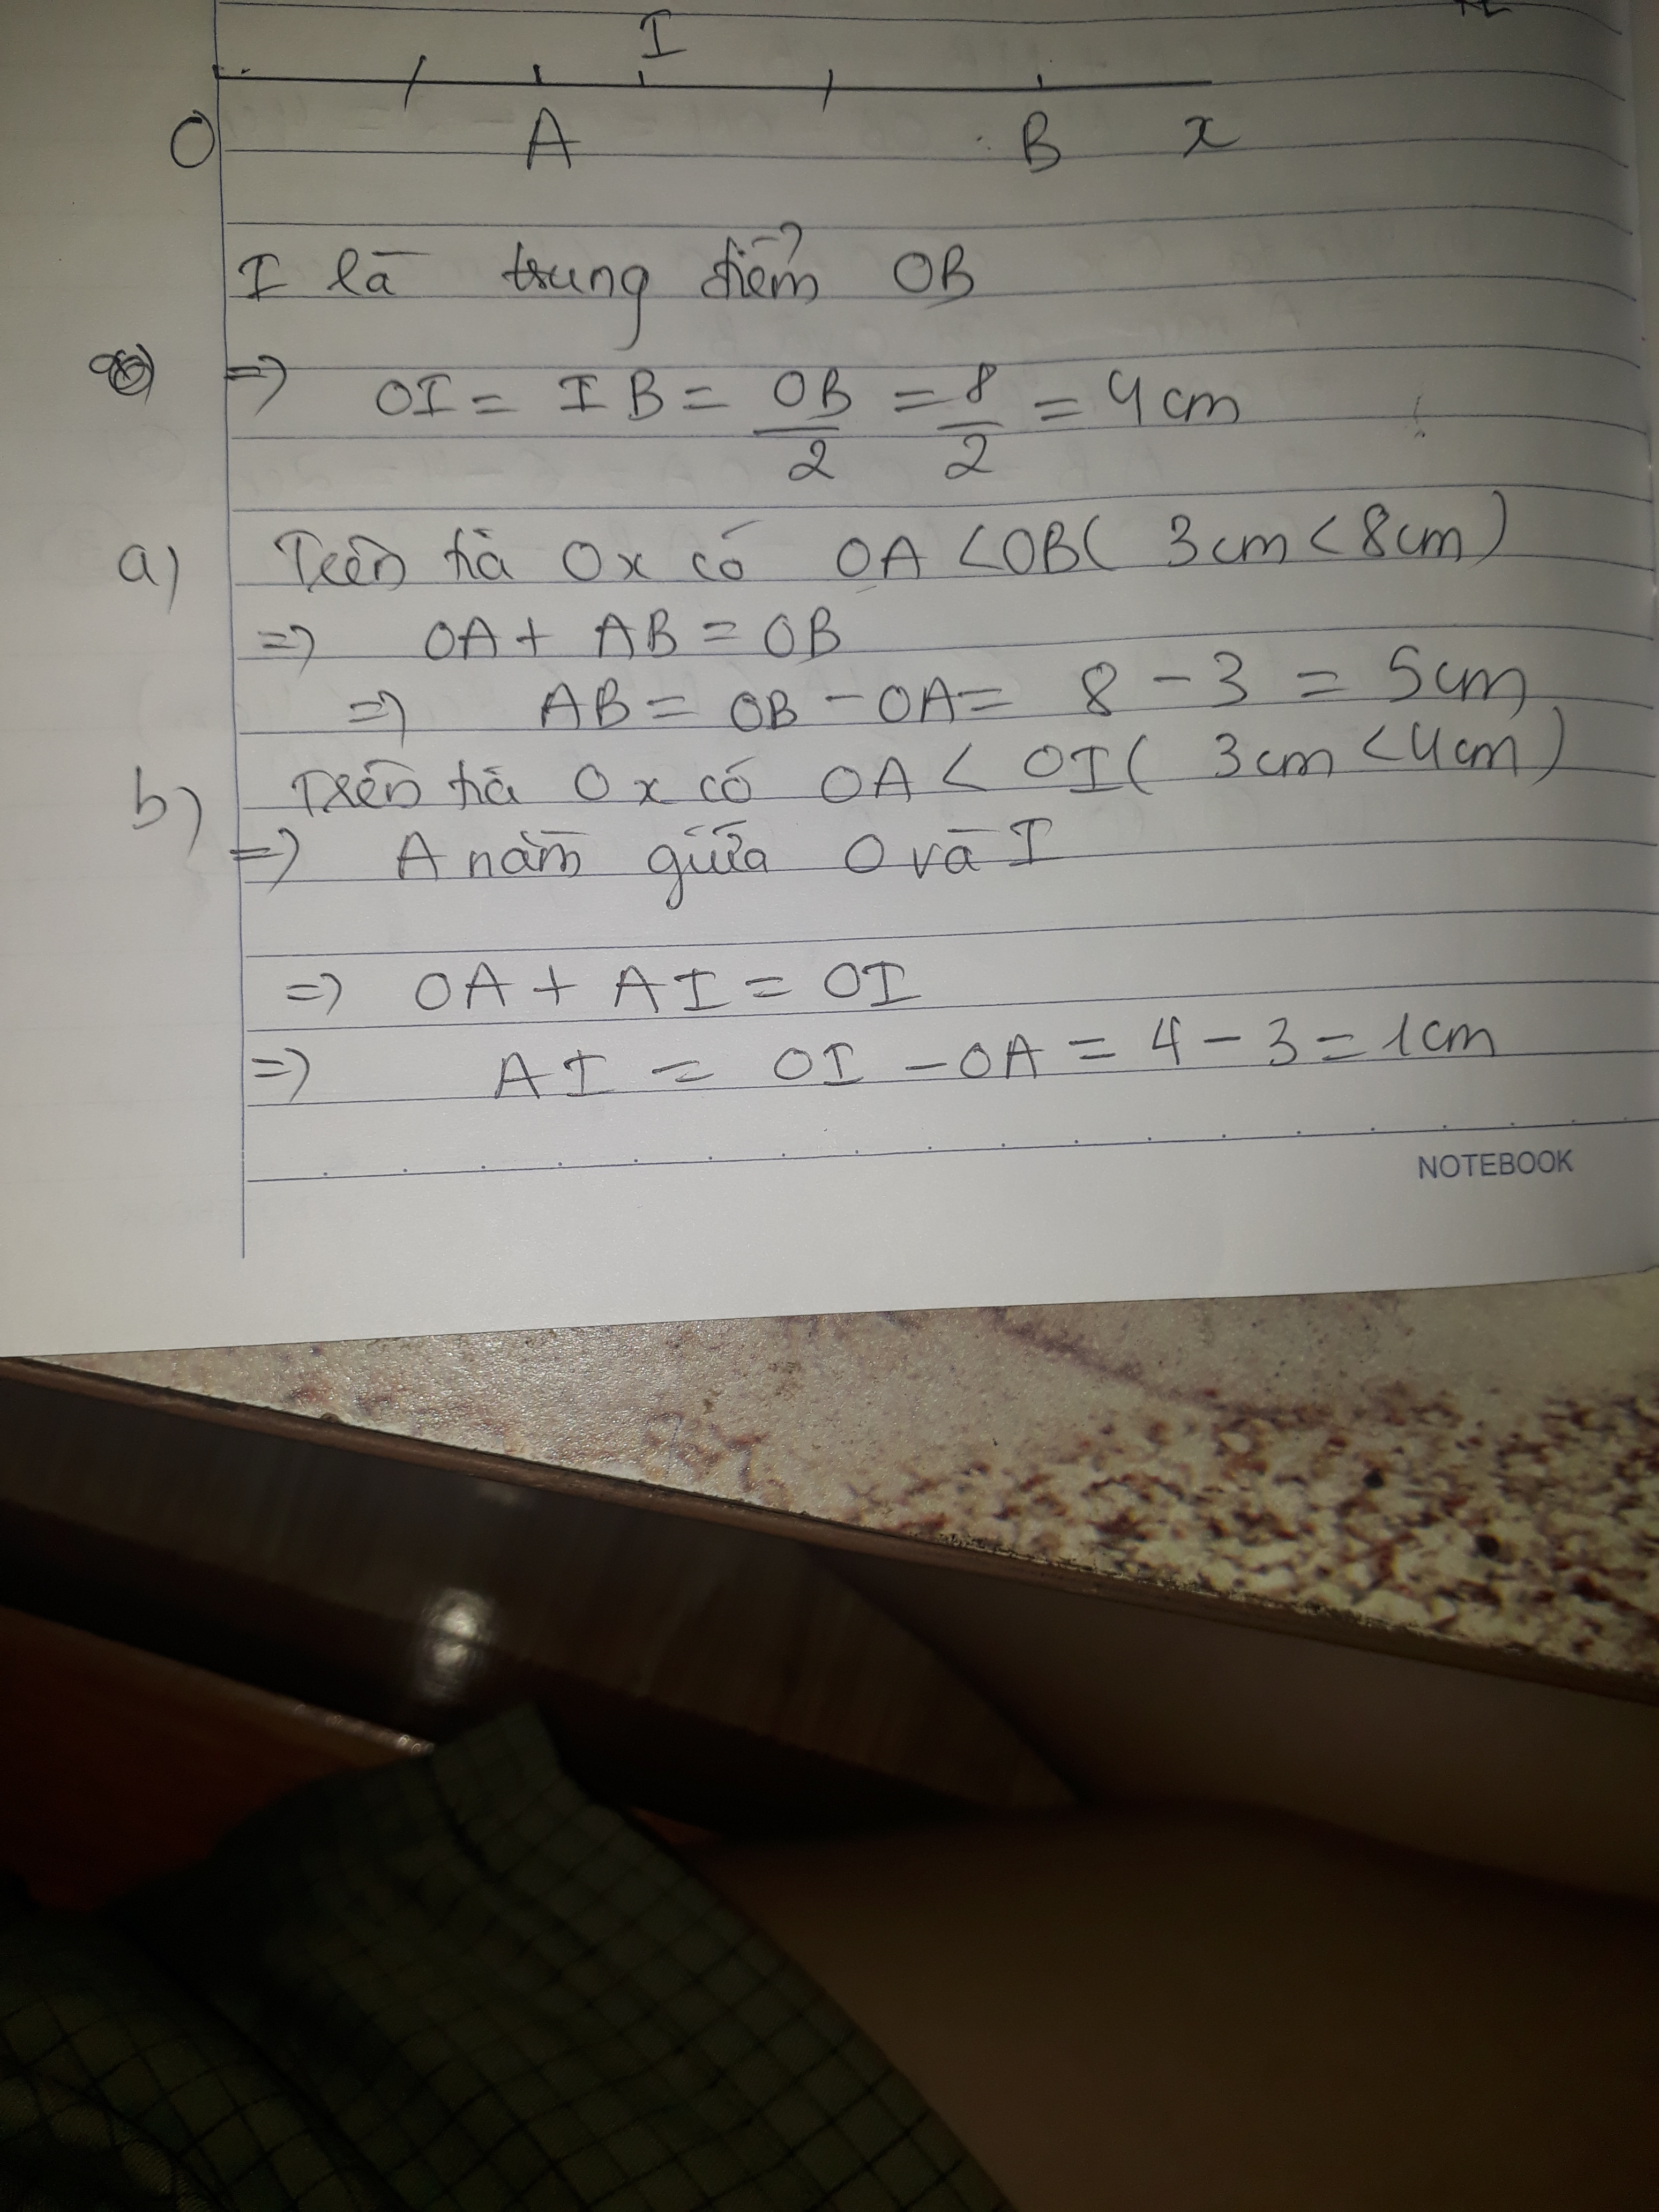 I
O A B x
I là trung điểm OB
=> OI = IB = OB/2 = 8/2 = 4cm
a) Trên tia Ox có OA < OB ( 3cm < 8cm )
=> OA + AB = OB
=> AB = OB - OA = 8 - 3 = 5cm
b) Trên tia Ox có OA < OI ( 3cm < 4cm )
=> A nằm giữa O và I
=> OA + AI = OI
=> AI = OI - OA = 4 - 3 = 1cm
NOTEBOOK